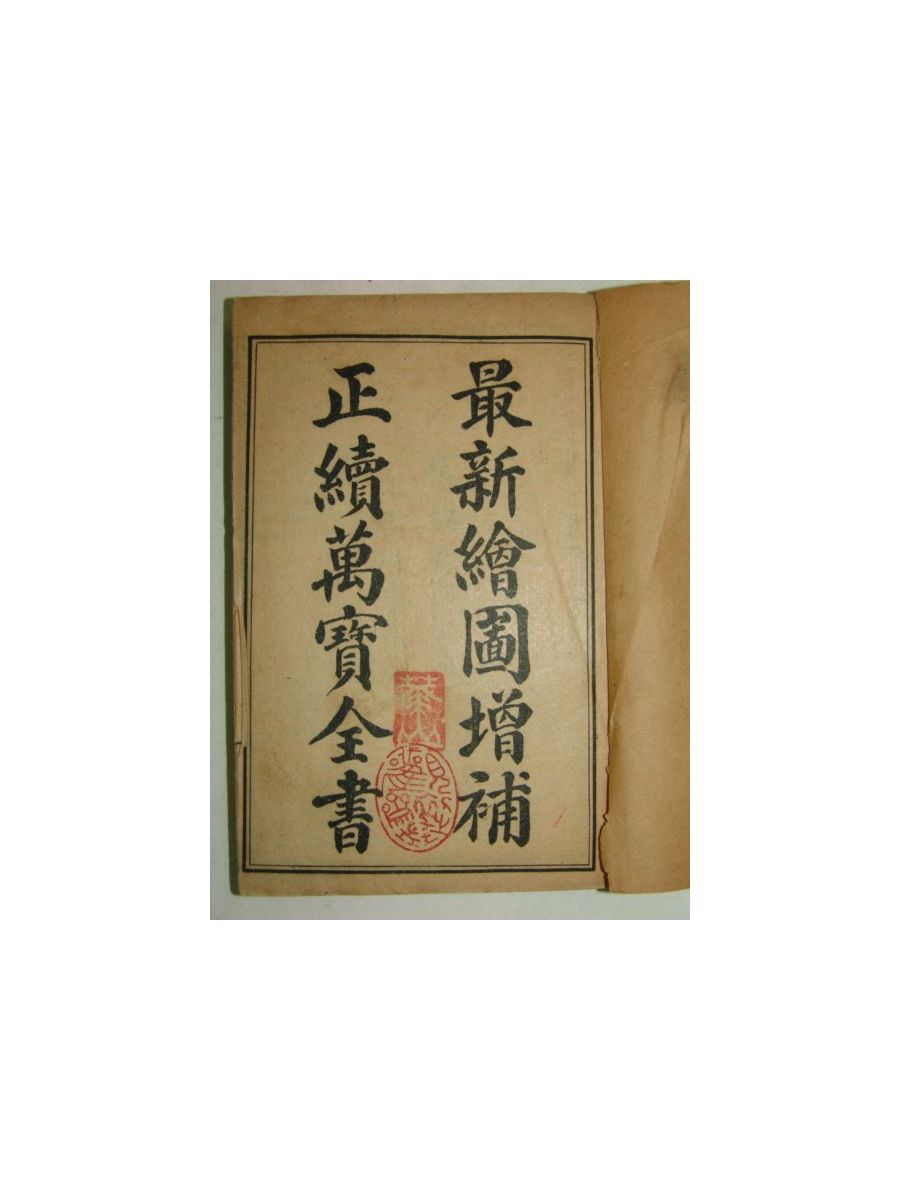 最新繪圖增補
正續萬寶全書